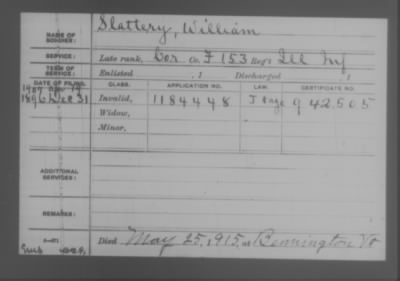 NAME OF SOLDIER: Slattery, William
SERVICE: Late rank, Cor. Co. F 153 Reg't Ill Inf
TERM OF SERVICE: Enlisted , 1 Discharged , 1
DATE OF FILING. CLASS. APPLICATION NO. LAW. CERTIFICATE NO.
1907
1896 Dec 31 Invalid, 1184448 942505
Widow,
Minor,
ADDITIONAL SERVICES:
REMARKS:
Died May 25, 1915, at Bennington Vt